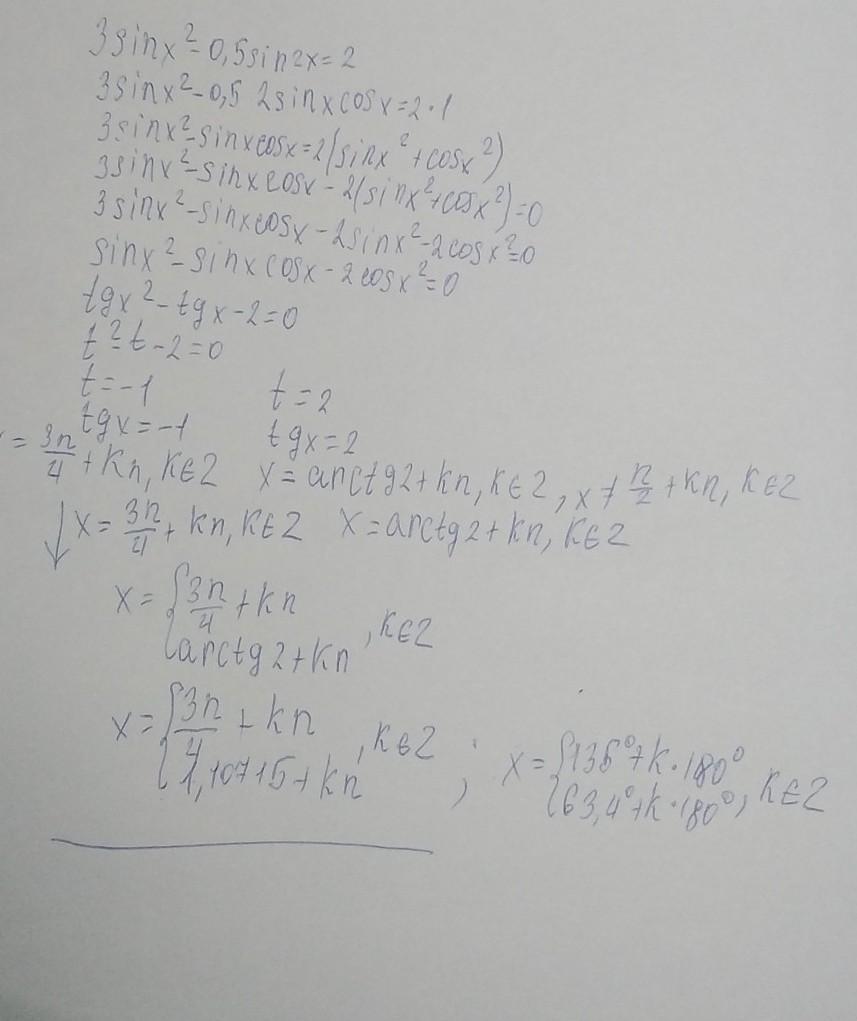 3sinx²-0,5sin2x=2
3sinx²-0,5 2sinxcosx=2·1
3sinx²-sinxcosx=2(sinx²+cosx²)
3sinx²-sinxcosx-2(sinx²+cosx²)=0
3sinx²-sinxcosx-2sinx²-2cosx²=0
sinx²-sinxcosx-2cosx²=0
tgx²-tgx-2=0
t²-t-2=0
t=-1 t=2
tgx=-1 tgx=2
= 3π/4 + kπ, k∈Z x=arctg2+kπ, k∈Z, x≠π/2+kπ, k∈Z
↓ x=3π/4+kπ, k∈Z x=arctg2+kπ, k∈Z
x={3π/4+kπ
arctg2+kπ, k∈Z
x={3π/4+kπ
1,10715+kπ, k∈Z ; x={135°+k·180°
63,4°+k·180°, k∈Z